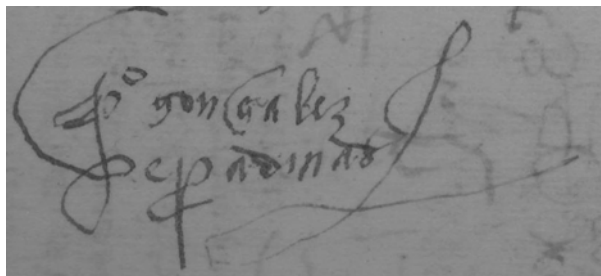 pº gonçalez
de padinad